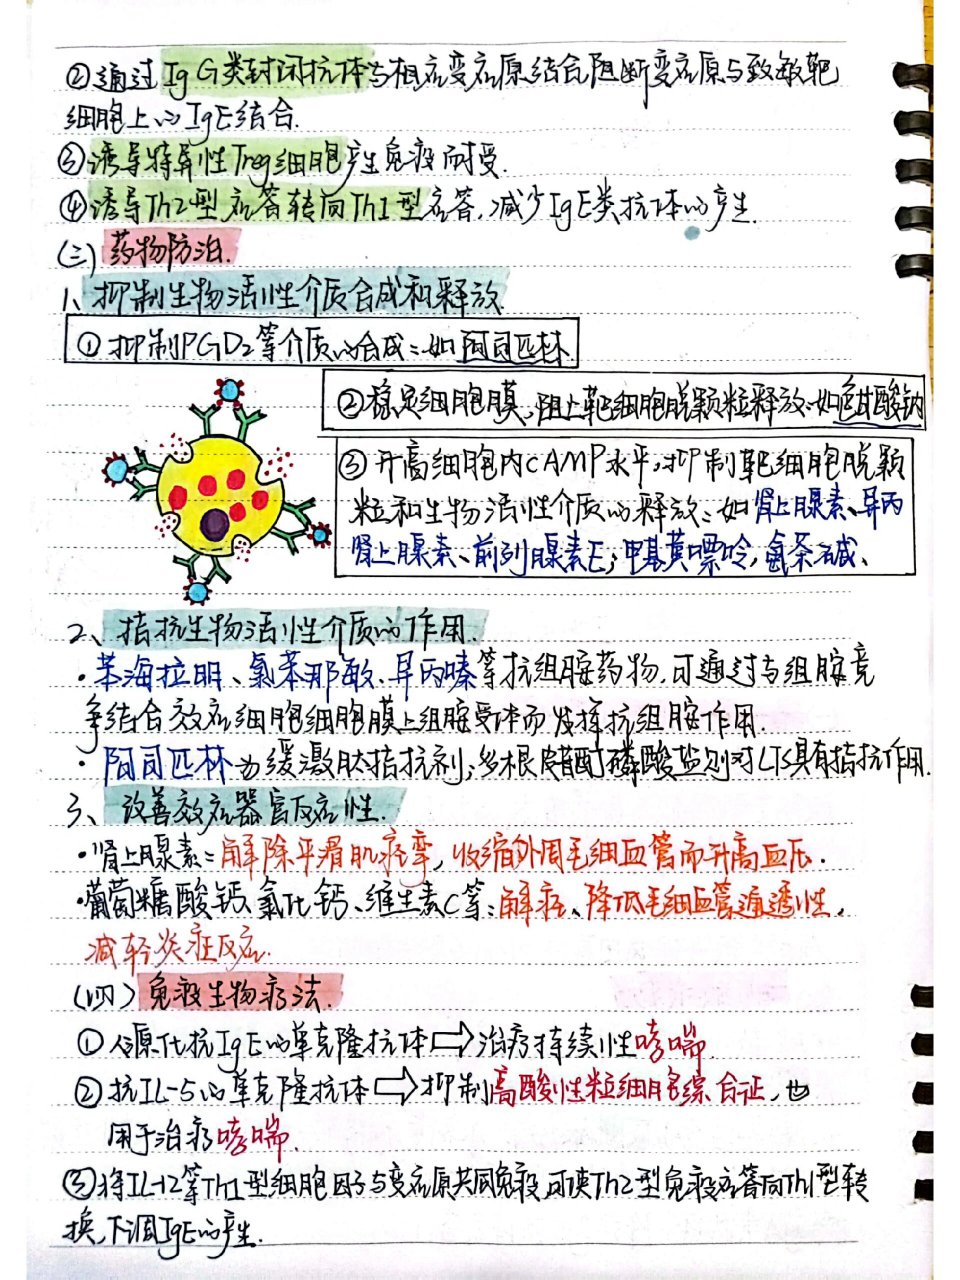 ②通过IgG类封闭抗体与相应变应原结合阻断变应原与致敏靶
细胞上的IgE结合.
③诱导特异性Treg细胞产生免疫耐受.
④诱导Th2型应答转向Th1型应答,减少IgE类抗体的产生
(三)药物防治.
1、抑制生物活性介质合成和释放
①抑制PGD₂等介质的合成:如阿司匹林
②稳定细胞膜,阻止靶细胞脱颗粒释放:如色甘酸钠
③升高细胞内cAMP水平,抑制靶细胞脱颗
粒和生物活性介质的释放:如肾上腺素、异丙
肾上腺素、前列腺素E;甲基黄嘌呤,氨茶碱、
2、拮抗生物活性介质的作用.
·苯海拉明、氯苯那敏、异丙嗪等抗组胺药物,可通过与组胺竞
争结合效应细胞细胞膜上组胺受体而发挥抗组胺作用.
·阿司匹林为缓激肽拮抗剂;多根皮酊磷酸盐则对LTS具有拮抗作用.
3、改善效应器官反应性.
·肾上腺素:解除平滑肌痉挛,收缩外周毛细血管而升高血压.
·葡萄糖酸钙、氯化钙、维生素C等:解痉、降低毛细血管通透性,
减轻炎症反应.
(四)免疫生物疗法.
①人源化抗IgE的单克隆抗体⇨治疗持续性哮喘
②抗IL-5的单克隆抗体⇨抑制高酸性粒细胞综合征,也
用于治疗哮喘.
③将IL-12等Th1型细胞因子与变应原共同免疫,可使Th2型免疫应答向Th1型转
换,下调IgE的产生.